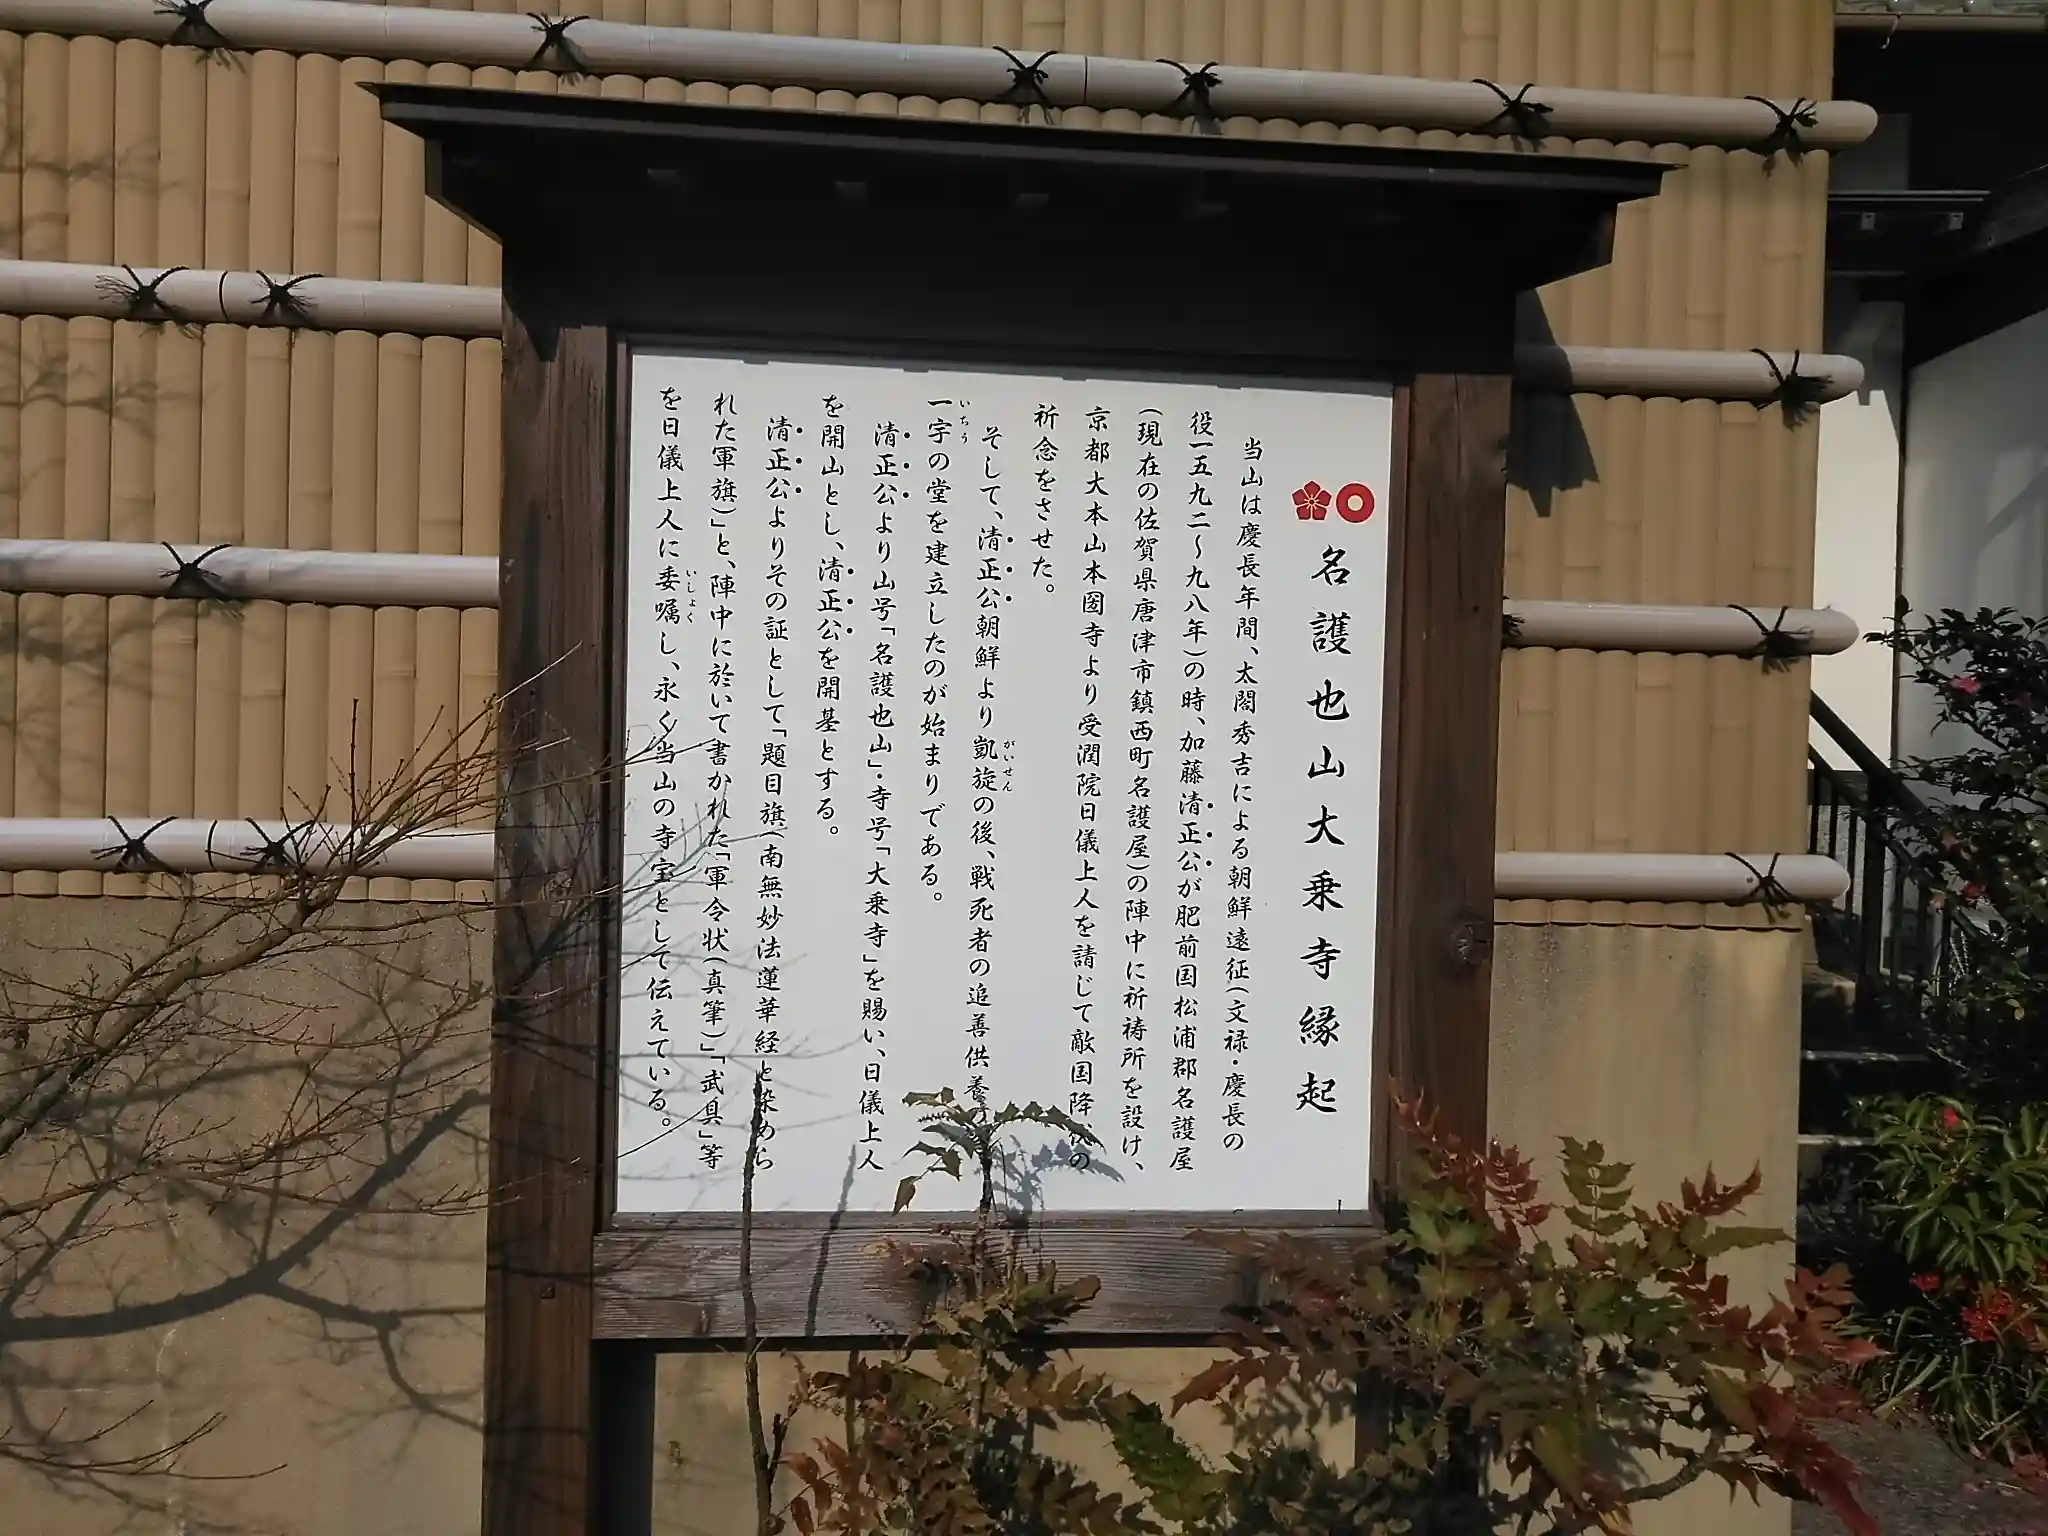 名護也山大乗寺縁起
当山は慶長年間、太閤秀吉による朝鮮遠征(文禄・慶長の
役一五九二〜九八年)の時、加藤清正公が肥前国松浦郡名護屋
(現在の佐賀県唐津市鎮西町名護屋)の陣中に祈祷所を設け、
京都大本山本圀寺より受潤院日儀上人を請じて敵国降伏の
祈念をさせた。
そして、清正公朝鮮より凱旋の後、戦死者の追善供養の
がいせん
一宇の堂を建立したのが始まりである。
いちう
清正公より山号「名護也山」・寺号「大乗寺」を賜い、日儀上人
を開山とし、清正公を開基とする。
清正公よりその証として「題目旗(南無妙法蓮華経と染めら
れた軍旗)」と、陣中に於いて書かれた「軍令状(真筆)」「武具」等
を日儀上人に委嘱し、永く当山の寺宝として伝えている。
いしょく